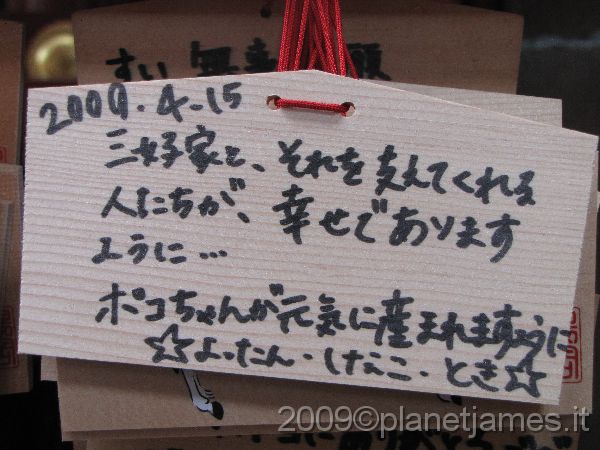 すい
2009.4.15
三好家と、それを支えてくれる
人たちが、幸せであります
ように…
ポコちゃんが元気に産まれますように
☆よったん・けえこ・とき☆
2009©planetjames.it